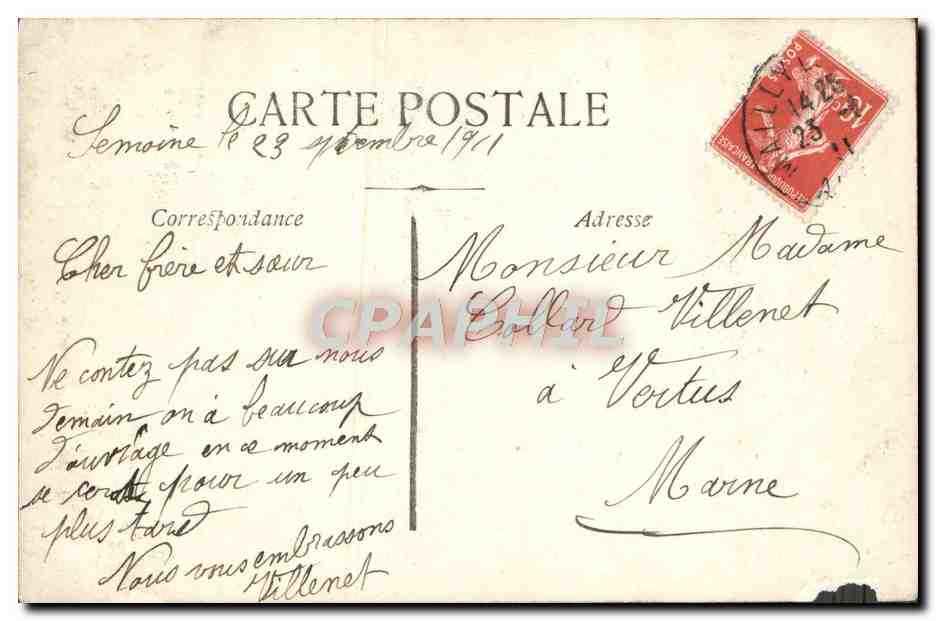 CARTE POSTALE
Semoine le 23 septembre 1911
Correspondance
Cher frère et sœur
Ne contez pas sur nous
demain on à beaucoup
d'ouvrage en ce moment
se cerat pour un peu
plus tard
Nous vous embrassons
Villenet
Adresse
Monsieur Madame
Collard Villenet
à Vertus
Marne
MAILLY
14 25
23
11
POSTES
10
REPUBLIQUE FRANÇAISE
CPAPHIL